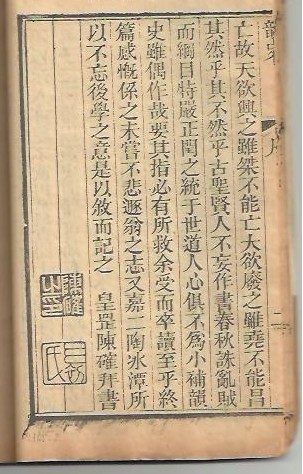 亡故天欲興之雖桀不能亡天欲廢之雖堯不能昌
其然乎其不然乎古聖賢人不妄作書春秋誅亂賊
而綱目特嚴正閏之統于世道人心俱不為小補韻
史雖偶作哉要其指必有所救余受而卒讀至乎終
篇感慨係之未嘗不悲遯翁之志又嘉二陶冰潭所
以不忘後學之意是以敘而記之　皇罡陳確拜書
韻史
序
二
陳確
之印